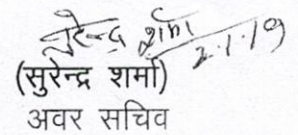 सुरेन्द्र शर्मा 2.1.19
(सुरेन्द्र शर्मा)
अवर सचिव